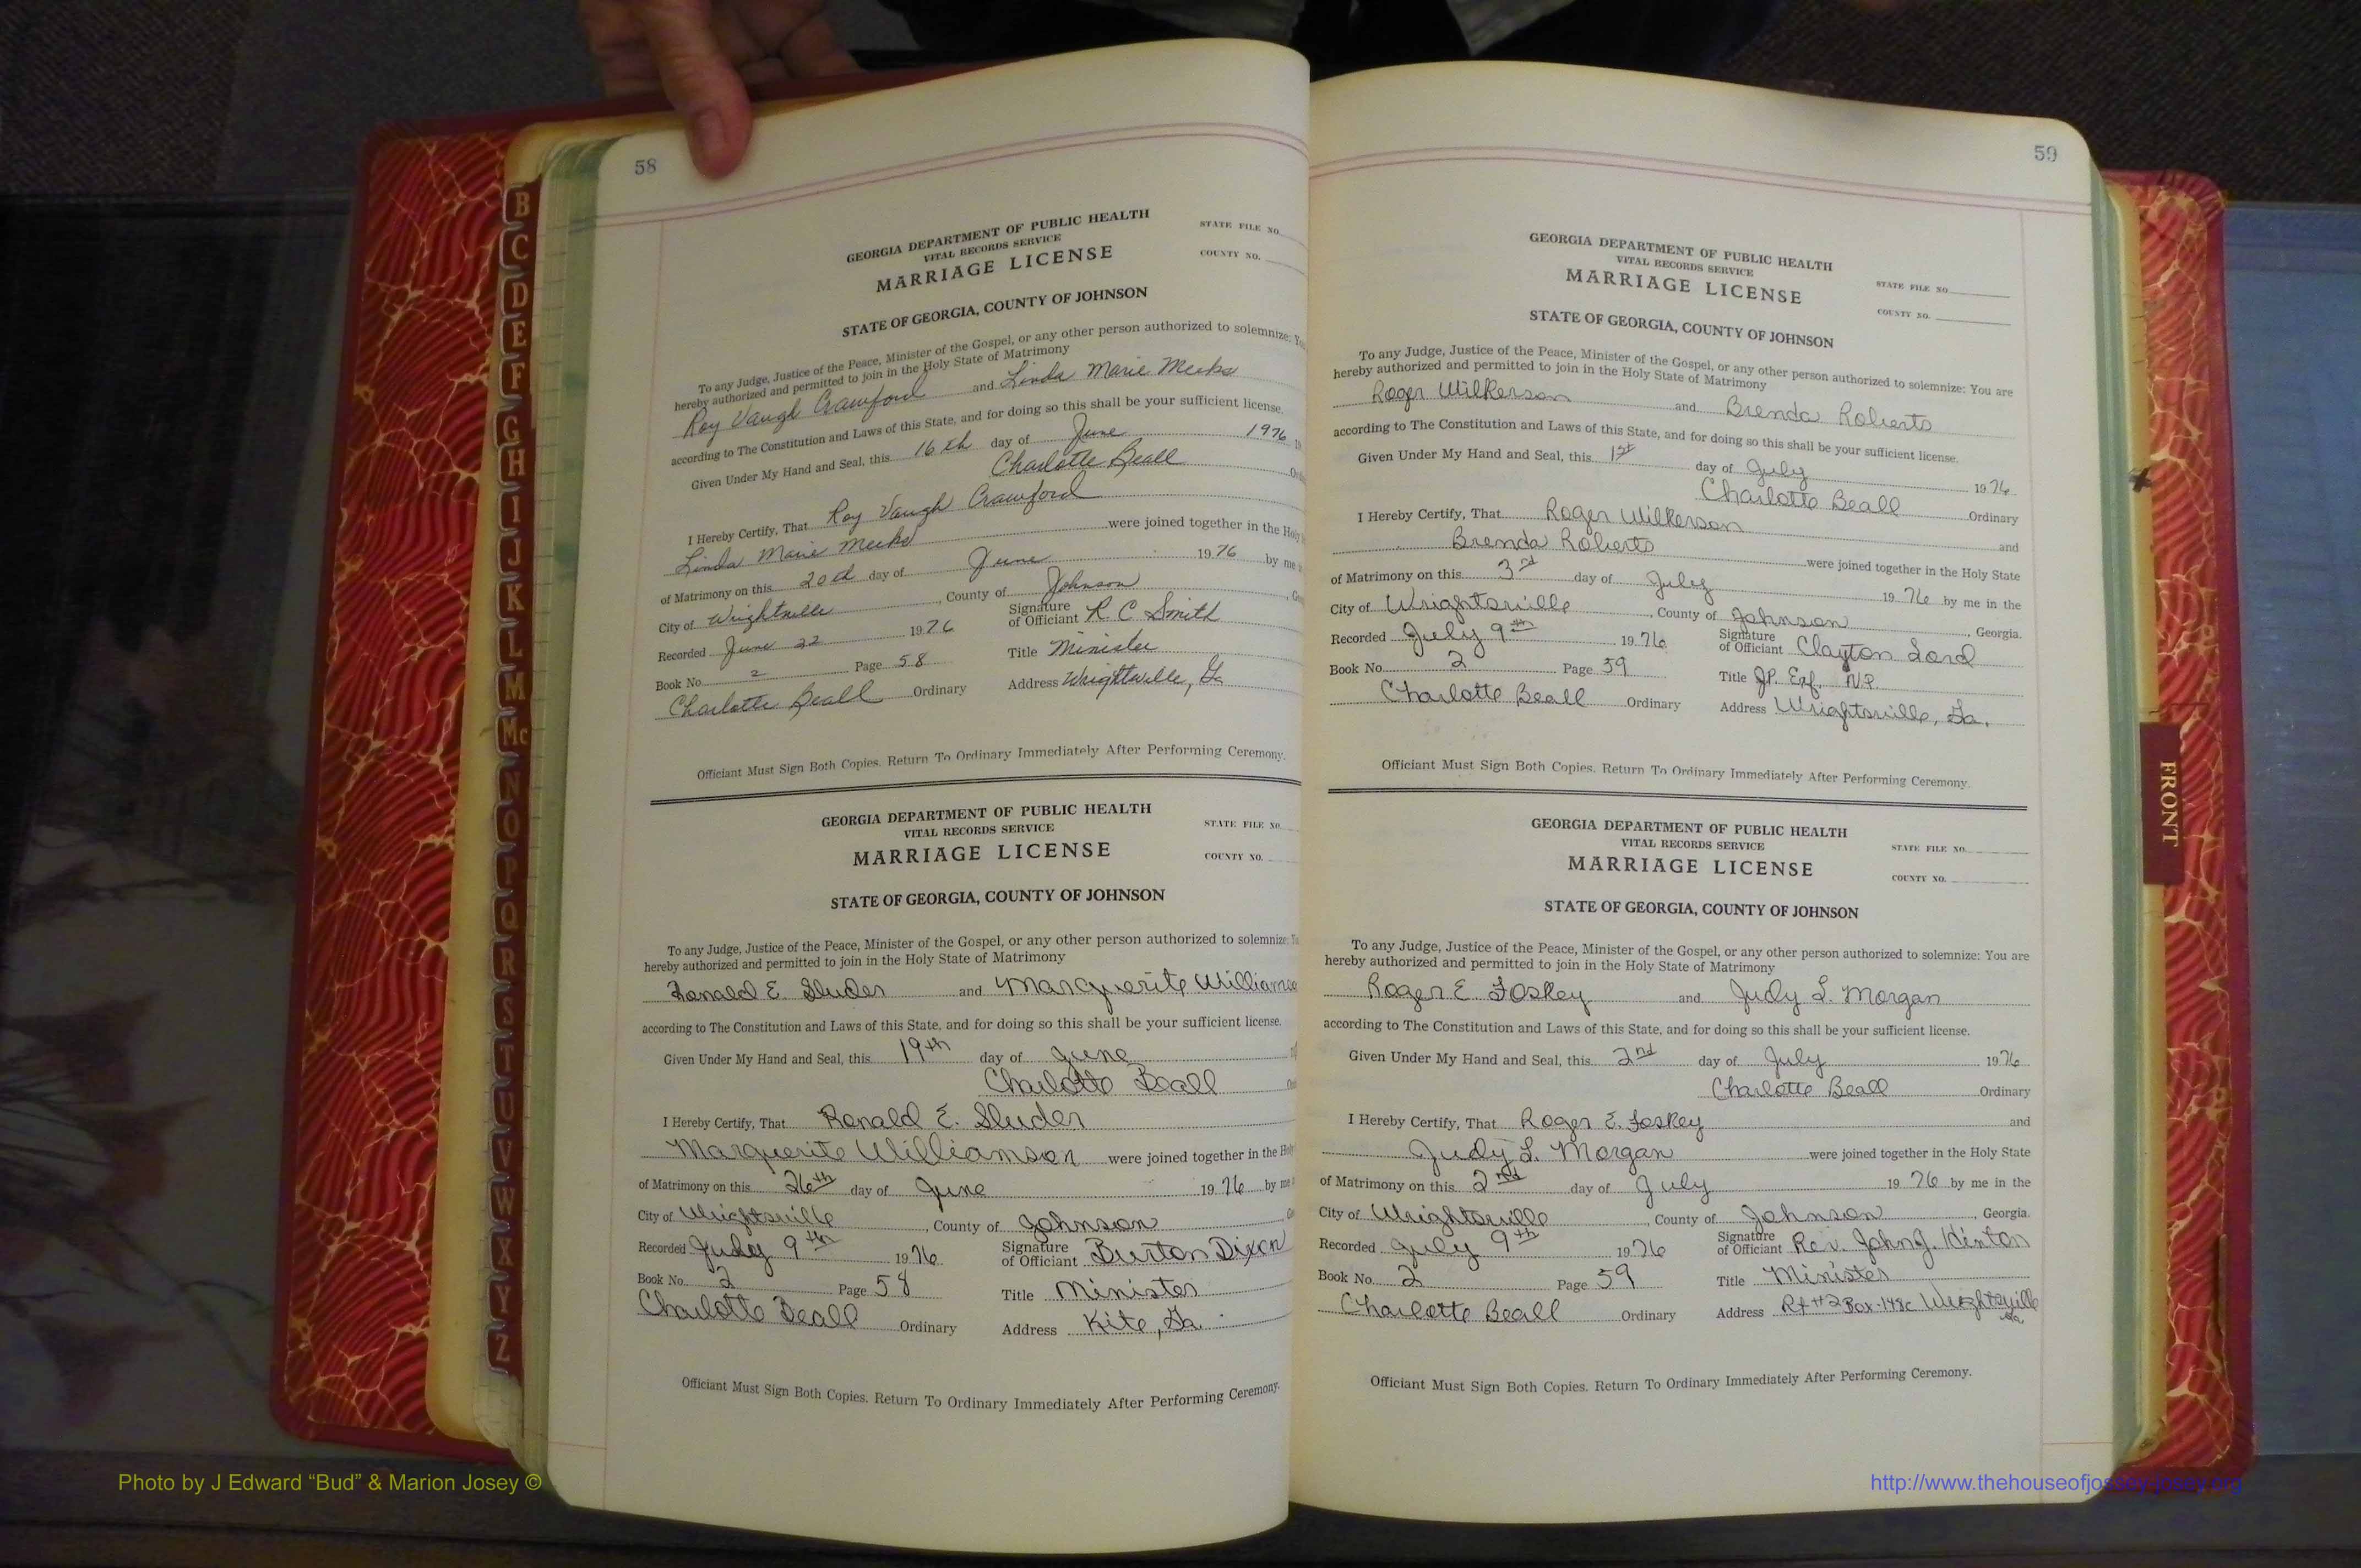 58
GEORGIA DEPARTMENT OF PUBLIC HEALTH
VITAL RECORDS SERVICE
MARRIAGE LICENSE
STATE FILE NO.
COUNTY NO.
STATE OF GEORGIA, COUNTY OF JOHNSON
To any Judge, Justice of the Peace, Minister of the Gospel, or any other person authorized to solemnize:
hereby authorized and permitted to join in the Holy State of Matrimony
Roy Vaugh Crawford and Linda Marie Meeks
according to The Constitution and Laws of this State, and for doing so this shall be your sufficient license.
Given Under My Hand and Seal, this 16th day of June 1976
Charlotte Beall
I Hereby Certify, That Roy Vaugh Crawford
Linda Marie Meeks were joined together in the Holy
of Matrimony on this 20th day of June 1976 by me
City of Wrightsville, County of Johnson
Recorded June 22 1976 Signature of Officiant R C Smith
Book No. 2 Page 58 Title Minister
Charlotte Beall Ordinary Address Wrightsville, Ga
Officiant Must Sign Both Copies. Return To Ordinary Immediately After Performing Ceremony.
GEORGIA DEPARTMENT OF PUBLIC HEALTH
VITAL RECORDS SERVICE
MARRIAGE LICENSE
STATE FILE NO.
COUNTY NO.
STATE OF GEORGIA, COUNTY OF JOHNSON
To any Judge, Justice of the Peace, Minister of the Gospel, or any other person authorized to solemnize:
hereby authorized and permitted to join in the Holy State of Matrimony
Ronald E. Sluder and Marguerite Williamso
according to The Constitution and Laws of this State, and for doing so this shall be your sufficient license.
Given Under My Hand and Seal, this 19th day of June
Charlotte Beall
I Hereby Certify, That Ronald E. Sluder
Marguerite Williamson were joined together in the
of Matrimony on this 26th day of June 1976 by me
City of Wrightsville, County of Johnson
Recorded July 9th 1976 Signature of Officiant Burton Dixon
Book No. 2 Page 58 Title Minister
Charlotte Beall Ordinary Address Kite, Ga.
Officiant Must Sign Both Copies. Return To Ordinary Immediately After Performing Ceremony.
59
GEORGIA DEPARTMENT OF PUBLIC HEALTH
VITAL RECORDS SERVICE
MARRIAGE LICENSE
STATE FILE NO.
COUNTY NO.
STATE OF GEORGIA, COUNTY OF JOHNSON
To any Judge, Justice of the Peace, Minister of the Gospel, or any other person authorized to solemnize: You are
hereby authorized and permitted to join in the Holy State of Matrimony
Roger Wilkerson and Brenda Roberts
according to The Constitution and Laws of this State, and for doing so this shall be your sufficient license.
Given Under My Hand and Seal, this 1st day of July 1976
Charlotte Beall Ordinary
I Hereby Certify, That Roger Wilkerson and
Brenda Roberts were joined together in the Holy State
of Matrimony on this 3rd day of July 1976 by me in the
City of Wrightsville, County of Johnson, Georgia.
Recorded July 9th 1976 Signature of Officiant Clayton Lord
Book No. 2 Page 59 Title J.P. Exf. N.P.
Charlotte Beall Ordinary Address Wrightsville, Ga.
Officiant Must Sign Both Copies. Return To Ordinary Immediately After Performing Ceremony.
GEORGIA DEPARTMENT OF PUBLIC HEALTH
VITAL RECORDS SERVICE
MARRIAGE LICENSE
STATE FILE NO.
COUNTY NO.
STATE OF GEORGIA, COUNTY OF JOHNSON
To any Judge, Justice of the Peace, Minister of the Gospel, or any other person authorized to solemnize: You are
hereby authorized and permitted to join in the Holy State of Matrimony
Roger E. Foskey and Judy L. Morgan
according to The Constitution and Laws of this State, and for doing so this shall be your sufficient license.
Given Under My Hand and Seal, this 2nd day of July 1976
Charlotte Beall Ordinary
I Hereby Certify, That Roger E. Foskey and
Judy L. Morgan were joined together in the Holy State
of Matrimony on this 2nd day of July 1976 by me in the
City of Wrightsville, County of Johnson, Georgia.
Recorded July 9th 1976 Signature of Officiant Rev. John J. Hinton
Book No. 2 Page 59 Title Minister
Charlotte Beall Ordinary Address Rt #2 Box-148c Wrightsville Ga.
Officiant Must Sign Both Copies. Return To Ordinary Immediately After Performing Ceremony.
B
C
D
E
F
G
H
I
J
K
L
M
Mc
N
O
P
Q
R
S
T
U
V
W
X
Y
Z
FRONT
Photo by J Edward “Bud” & Marion Josey ©
http://www.thehouseofjossey-josey.org